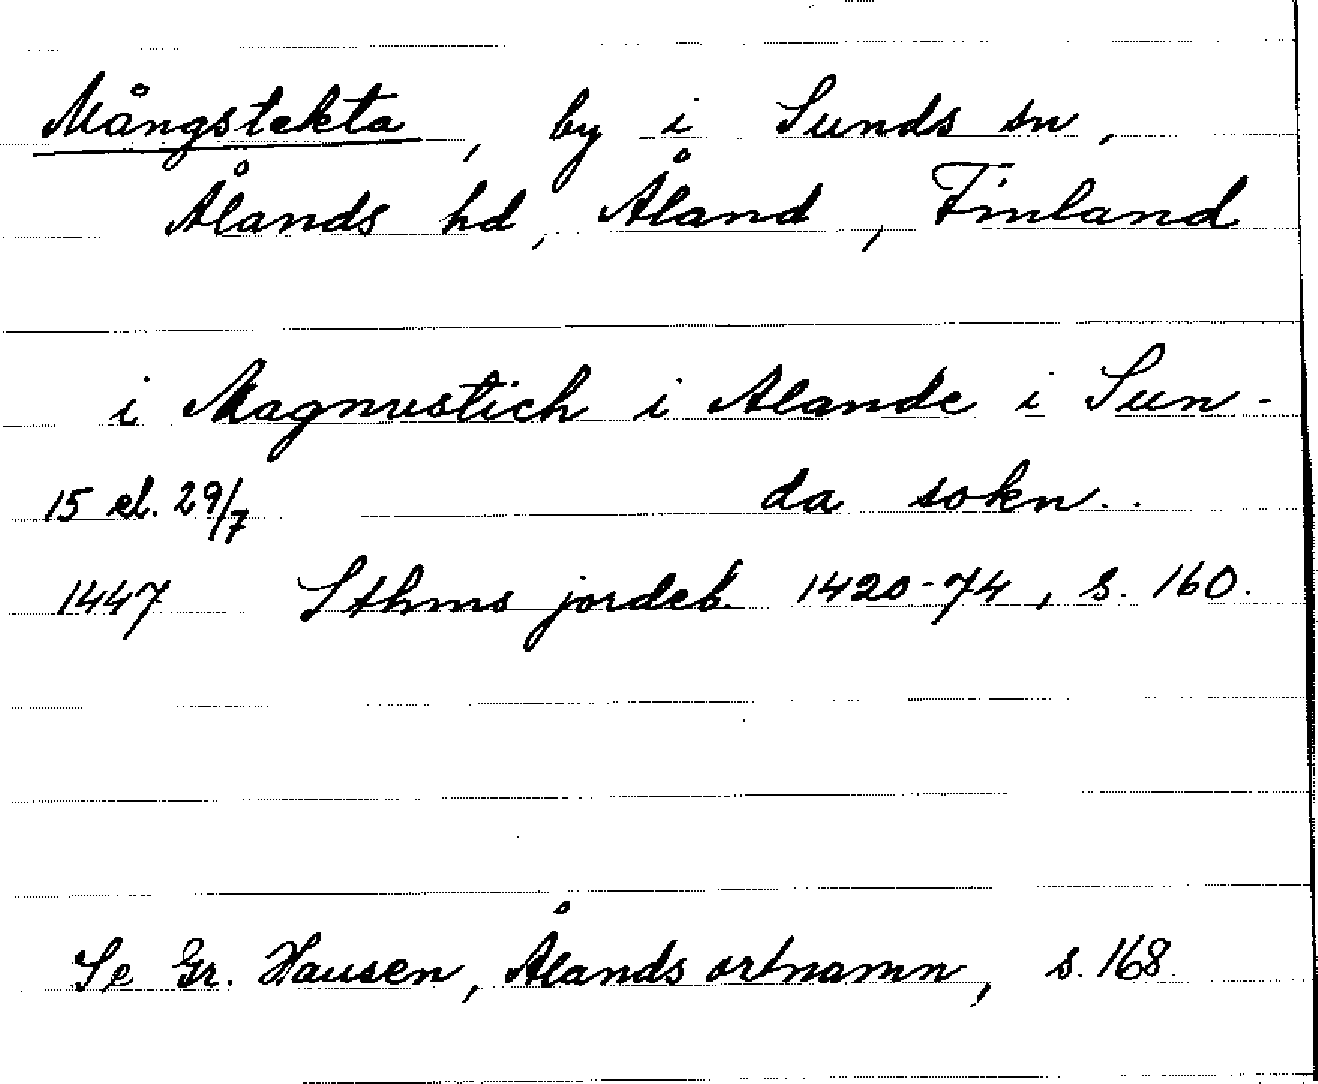 Mångstekta, by i Sunds sn,
Ålands hd, Åland, Finland
i Magnustich i Alande i Sun-
15 el. 29/7 da sokn..
1447 Sthms jordeb. 1420-74, s. 160.
Se Gr. Hausen, Ålands ortnamn, s. 168.